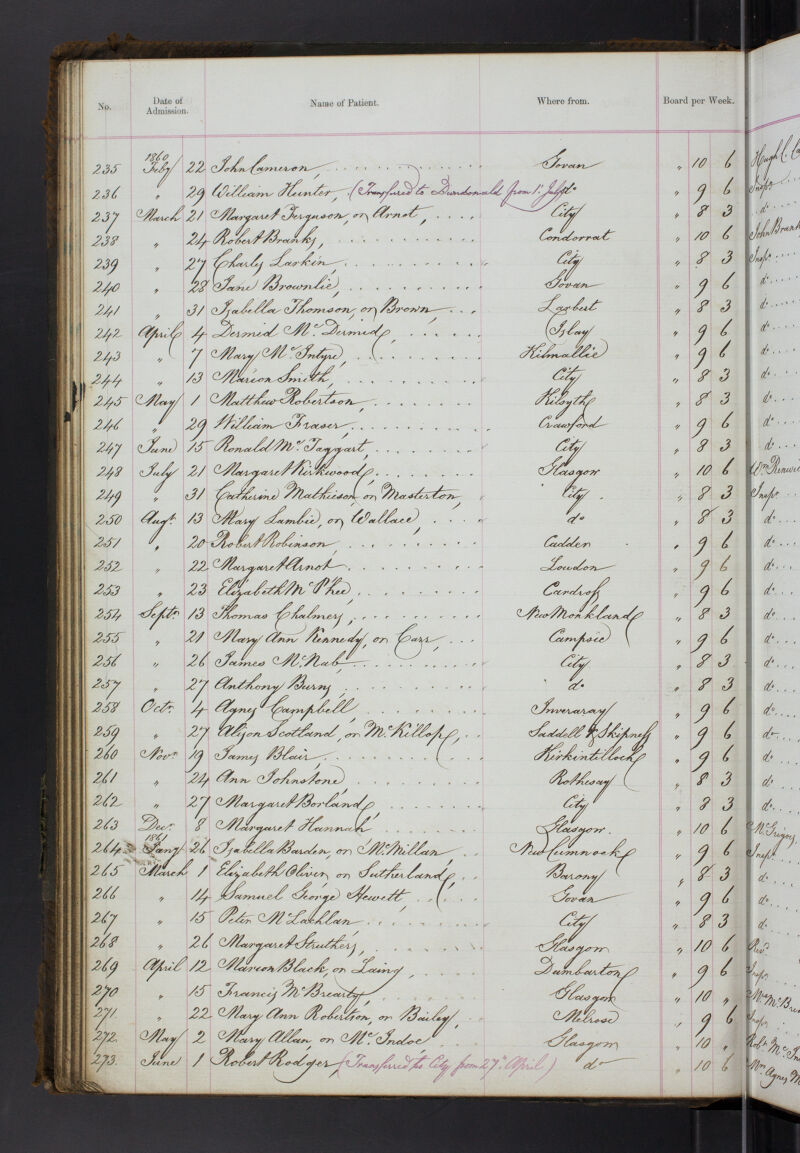 No. Date of Admission. Name of Patient. Where from. Board per Week.
1860
235 Feby 22 John Cameron, Govan " 10 6 Hugh C.
236 " 29 William Hunter, (Transfured to Dundonald from 1st July) do " 9 6 Inspr
237 March 21 Margaret Ferguson, or Arnot, City " 8 3 do
238 " 24 Robert Branks, Condorrat " 10 6 John Brank
239 " 27 Charles Larkin City " 8 3 Inspr
240 " 28 Jane Brownlie, Govan " 9 6 do
241 " 31 Isabella Thomson, or Brown, Larbert " 8 3 do
242 April 4 Dermid Mc Dermid, Islay " 9 6 do
243 " 7 Mary Mc Intyre, Kilmallie " 9 6 do
244 " 13 Marion Smith, City " 8 3 do
245 May 1 Matthew Robertson, Kilsyth " 8 3 do
246 " 29 William Fraser, Crawford " 9 6 do
247 June 15 Ronald Mc Taggart, City " 8 3 do
248 July 21 Margaret Kirkwood, Glasgow " 10 6 Wm Renwi
249 " 31 Catherine Mathieson or Masterton, City " 8 3 Inspr
250 Augt 13 Mary Lambie, or Wallace, do " 8 3 do
251 " 20 Robert Robinson Cadder " 9 6 do
252 " 22 Margaret Arnot Loudon " 9 6 do
253 " 23 Elizabeth Mc Phee, Cardross " 9 6 do
254 Septr 13 Thomas Chalmers, New Monkland " 8 3 do
255 " 21 Mary Ann Kennedy, or Carr, Campsie " 9 6 do
256 " 26 James McNab, City " 8 3 do
257 " 27 Anthony Burns, do " 8 3 do
258 Octr 4 Agnes Campbell, Inveraray " 9 6 do
259 " 27 Alison Scotland, or McKillop, Saddell & Skipness " 9 6 do
260 Novr 19 James Blair, Kirkintilloch " 9 6 do
261 " 24 Ann Johnstone Rothesay " 8 3 do
262 " 27 Margaret Borland, City " 8 3 do
263 Decr 8 Margaret Hannah Glasgow. " 10 6 McGrigor
1861
264 Jany 26 Isabella Barden, or McMillan, New Cumnock " 9 6 Inspr
265 March 1 Elizabeth Oliver, or Sutherland, Barony " 8 3 do
266 " 14 Samuel George Hewett, Govan " 9 6 do
267 " 15 Peter McLachlan City " 8 3 do
268 " 26 Margaret Struthers, Glasgow " 10 6 Revd
269 April 12 Marion Black, or Laing, Dumbarton " 9 6 Inspr
270 " 15 Francis McBrearty, Glasgow " 10 " Mrs McBre
271 " 22 Mary Ann Robertson, or Bailey, Melrose " 9 6 Inspr
272 May 2 Mary Allan or Mc Indoe Glasgow " 10 " Robt Mc In
273. June 1 Robert Rodger (Transfurred to City from 27th April) do " 10 6 Mrs Agnes M